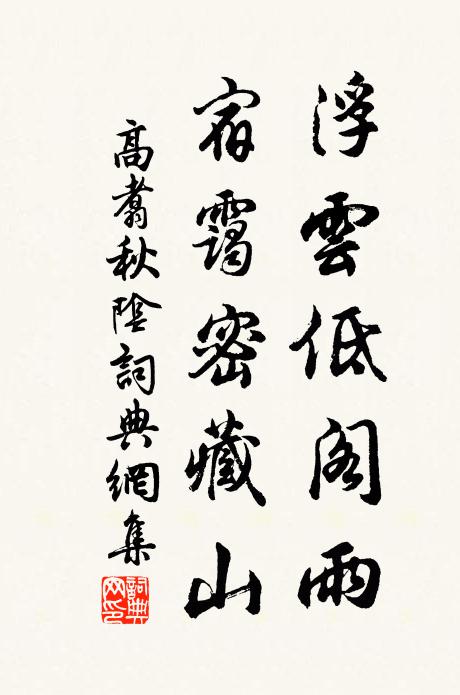 浮雲低閣雨
宿靄密藏山
高翥秋陰詞典網集
詞典
网印